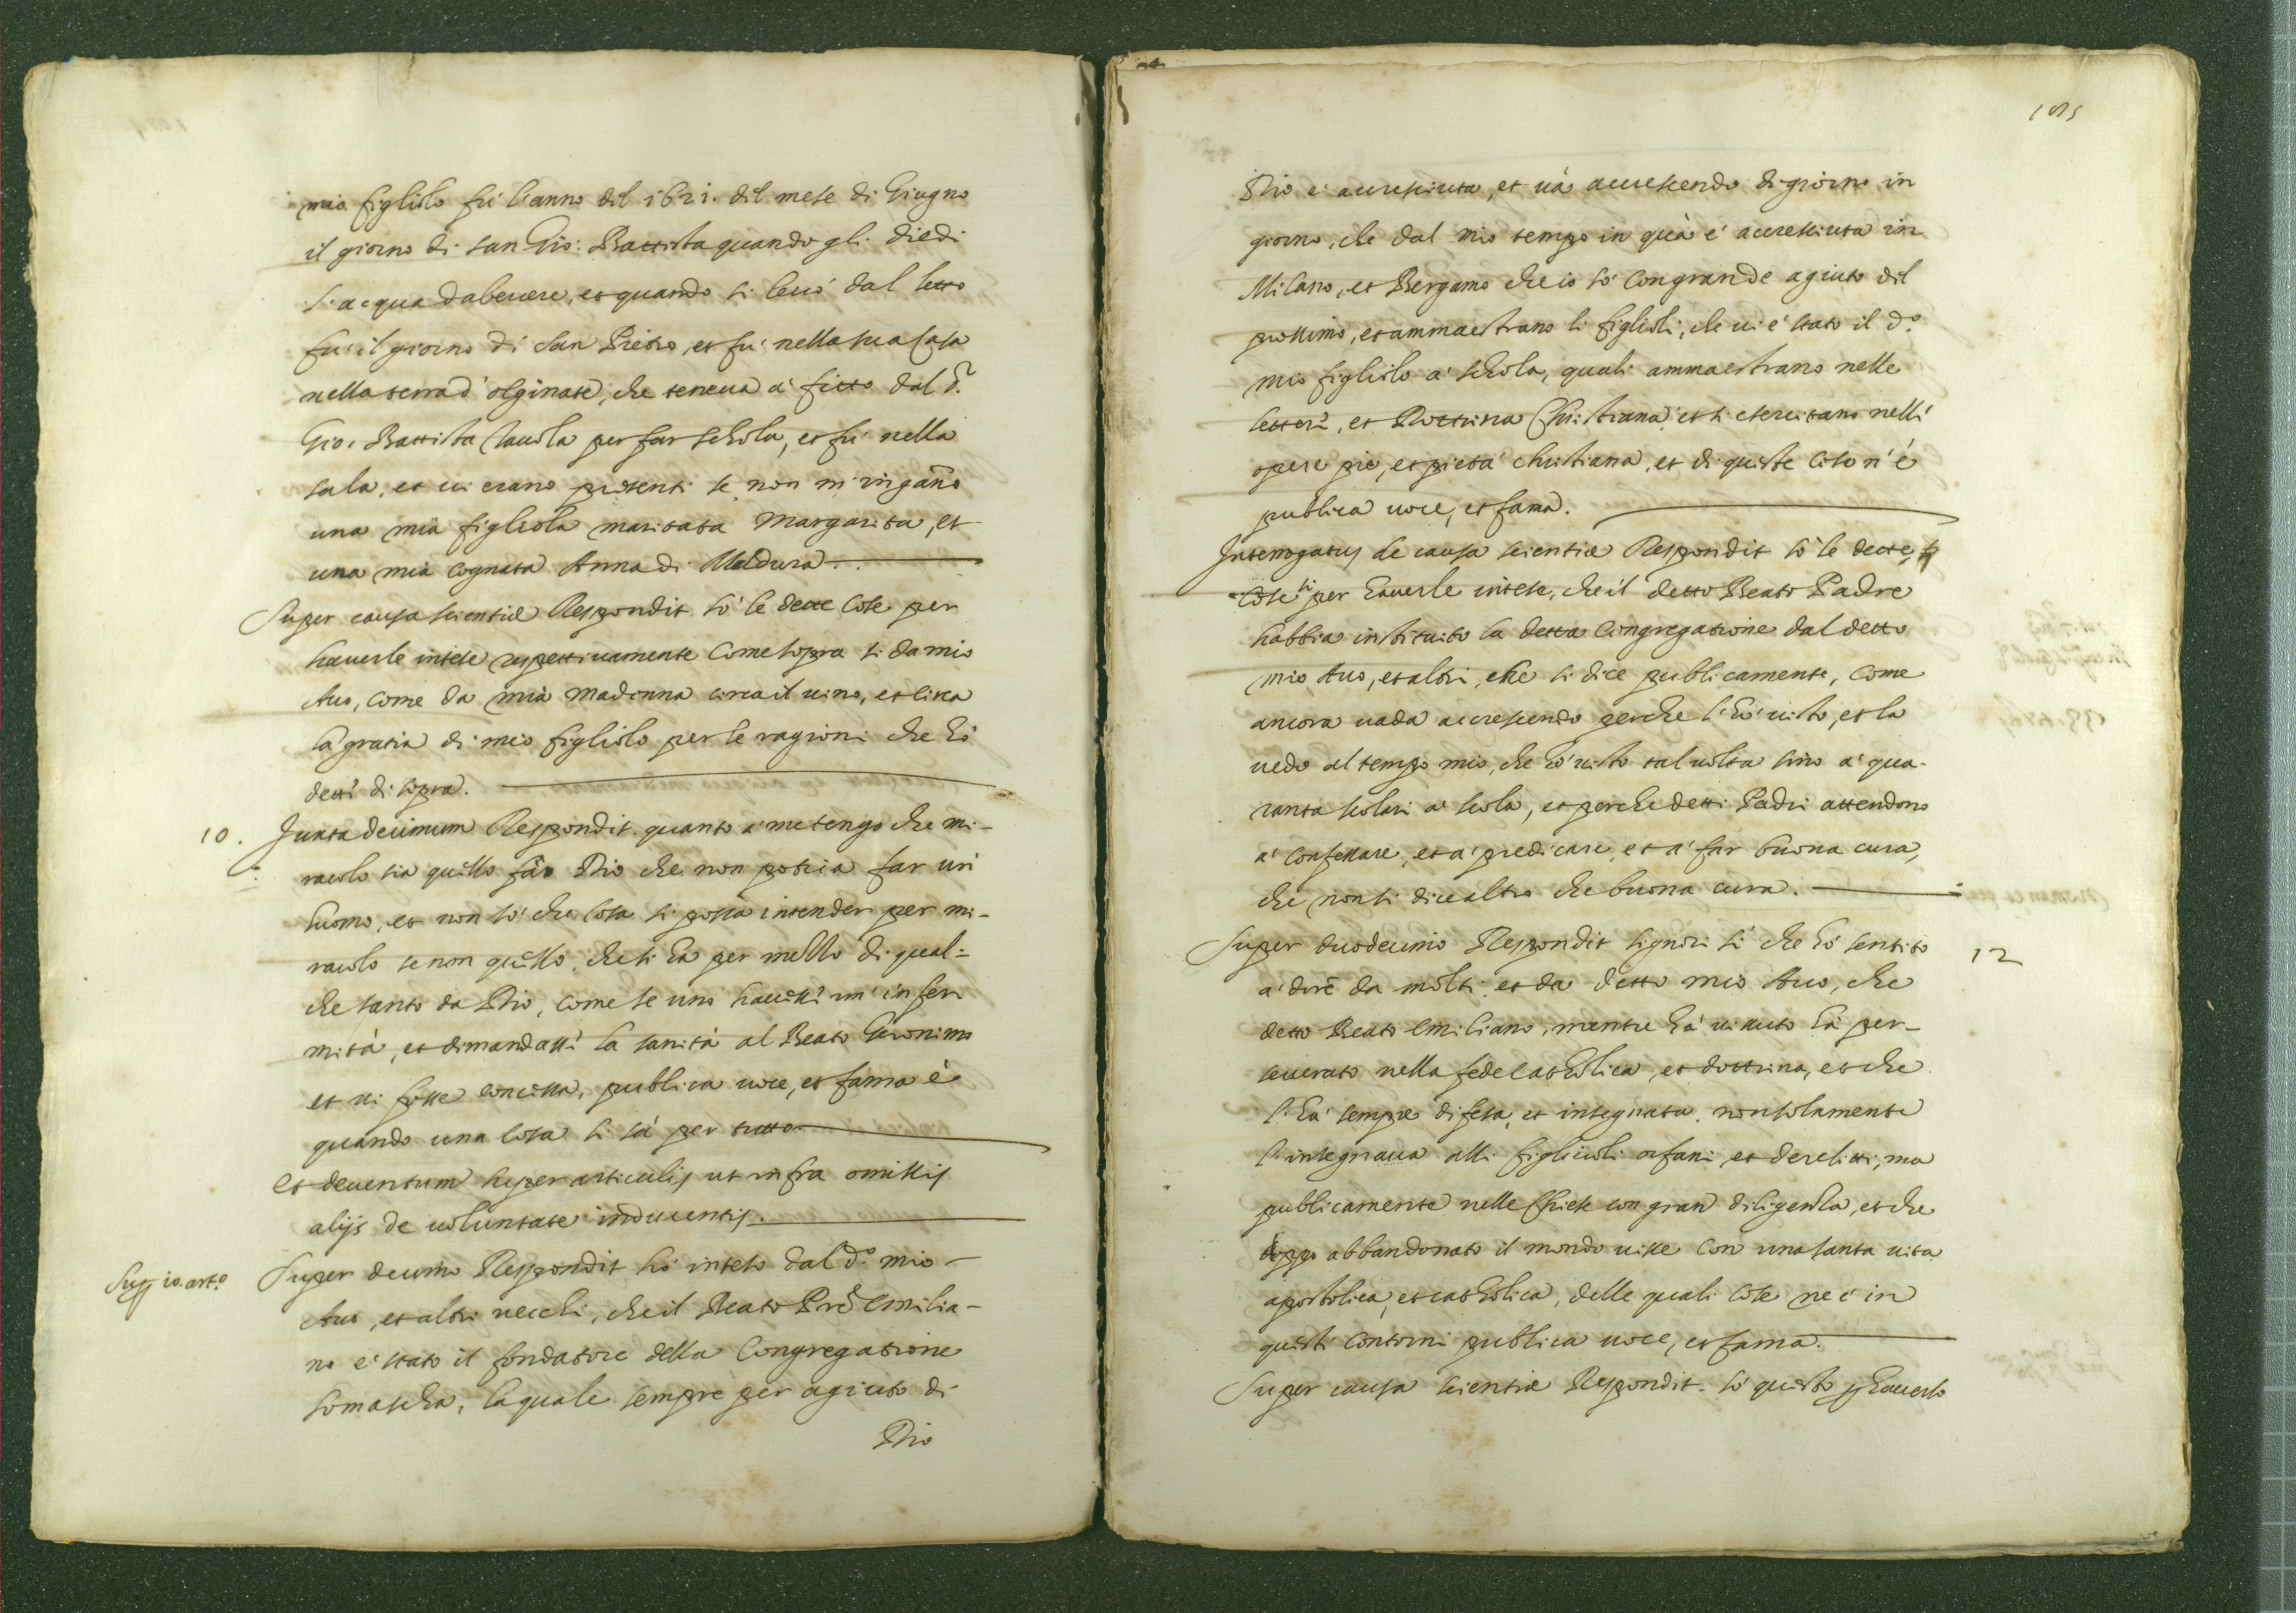 mio figliolo fù l'anno dil 1621. dil mese di Giugno
il giorno di san Gio: Battista quando gli diedi
l'acqua da bevere, et quando si levò dal letto
fù il giorno di San Pietro, et fù nella sua Casa
nella terra d'olginate, che teneva à fitto dal d.
Gio: Battista per far schola, et fù nella
sala, et vi erano presenti se non m'inganno
una mia figliola maritata Margarita, et
una mia cognata Anna di Maldura.
Super causa scientiæ Respondit sò le dette cose per
haverle intese respettivamente come sopra si da mio
Avo, come da mia Madonna circa il vino, et circa
la gratia di mio figliolo per le ragioni che hò
detti di sopra.
10. Juxta decimum Respondit. quanto a me tengo che mi-
racolo sia quello fà Dio che non potria far un
huomo, et non sò che cosa si possa intender per mi-
racolo se non quello, che si hà per mezzo di qual=
che santo da Dio, come se uno havesse un' infer
mità, et dimandasse la sanità al Beato Gieronimo
et vi fosse concessa, publica voce, et fama è
quando una cosa si sà per tutto
et deventum super articulis ut infra omissis
alijs de voluntate inducentis.
Sup 10. art.o Super decimo Respondit hò inteso dal d.o mio
Avo, et altri vecchi, che il Beato Pre Emilia-
no è stato il fondatore della Congregatione
somascha, la quale sempre per agiuto di
Dio
105
Dio è accresciuta, et và accrescendo di giorno in
giorno, che dal mio tempo in quà è accresciuta in
Milano, et Bergamo che io sò con grande agiuto dil
prossimo, et ammaestrano li figlioli, che vi è stato il d.o
mio figliolo a schola, quali ammaestrano nelle
lettere, et Dottrina Christiana et si esercitano nelli
opere pie, et pietà christiana, et di queste cose n'è
publica voce, et fama.
Interrogatus de causa scientiæ Respondit sò le dette
cose si per haverle intese, che il detto Beato Padre
habbia instituito la detta Congregatione dal detto
mio Avo, et altri, che si dice publicamente, come
ancora vada accrescendo perche l'hò visto, et la
vedo al tempo mio, che hò visto tal volta sino a qua-
ranta scolari a scola, et perche detti Padri attendono
a confessare, et a predicare, et a far buona cura,
che non si dice altro che buona cura.
Super duodecimo Respondit signori sì che hò sentito 12
a dire da molti et da detto mio Avo, che
detto Beato Emiliano, mentre hà vissuto hà per-
severato nella fede catholica, et dottrina, et che
l'hà sempre difesa, et insegnata non solamente
l'insegnava alli figliuoli orfani et derelitti, ma
publicamente nelle Chiese con gran diligenza, et che
doppo abbandonato il mondo visse con una santa vita
apostolica, et catholica, delle quali cose ne è in
questi contorni publica voce, et fama.
Super causa scientiæ Respondit. sò questo p haverlo